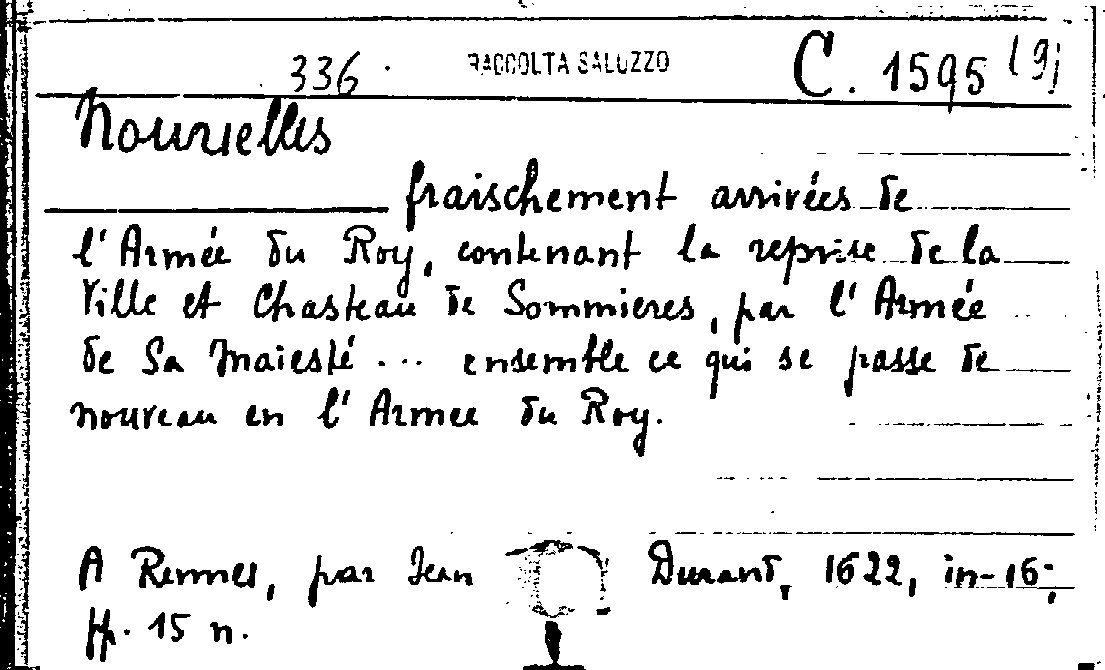 336. RACCOLTA SALUZZO C. 1595 (9)
Nouvelles
fraischement arrivées de
l'Armée du Roy, contenant la reprise de la
Ville et Chasteau de Sommieres, par l'Armée
de Sa Maiesté ... ensemble ce qui se passe de
nouveau en l'Armee du Roy.
A Rennes, par Jean Durant, 1622, in-16°,
pp. 15 n.